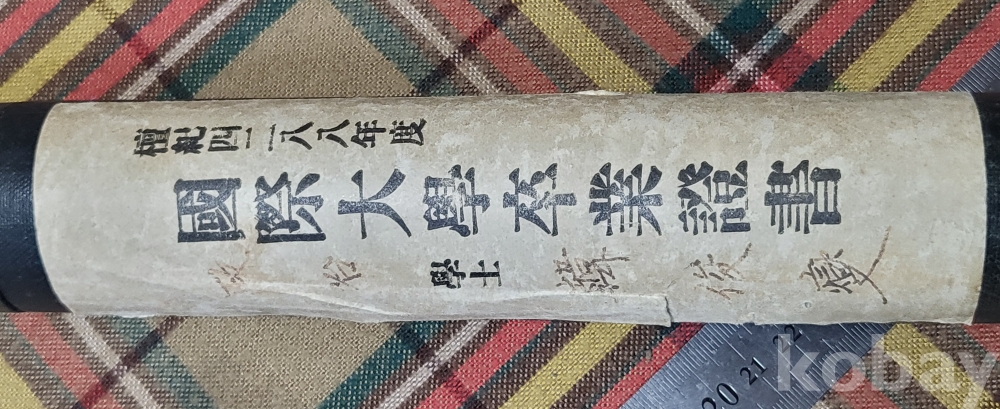 檀紀四二八八年度
國際大學卒業證書
政治學士
20 21 22
kobay